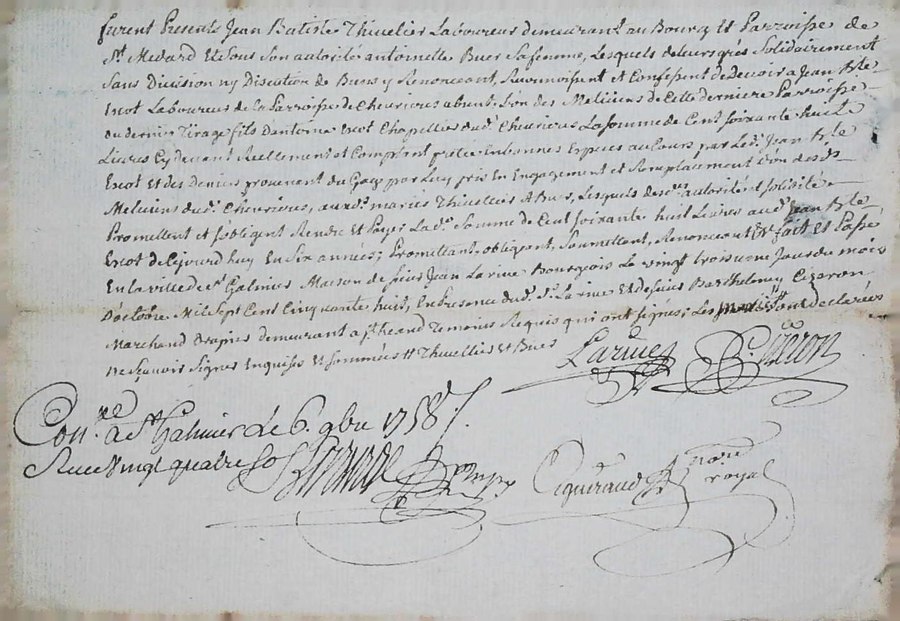 furent Presents Jean Batiste Thivelier Laboureur demeurant au Bourg Et Parroisse de
St. Medard Et Sous Son autorité antoinette Buer Sa femme, Lesquels de leurs grés Solidairement
Sans Division ny Discution de Biens y Renonceant Reconnoissent et Confessent de devoir a Jean Bte
Escot Laboureur de la Parroisse de Chevrieres absent, L'un des Miliciens de Cette derniere Parroisse
au dernier Tirage fils D'antoine Escot Chapellier dud. Chevrieres La somme de Cent Soixante huit
Livres Cy devant Reellement et Comptant pretée En bonnes Especes au Cours par Led. Jean Bte
Escot Et des Deniers provenant du Gage par Luy pris En Engagement et Remplacement d'un desds
Miliciens dud. Chevrieres, auxds. mariés Thivellier Et Buer, Lesquels desds. autorité et solidité
Promettent et sobligent Rendre Et Payer Lad. Somme de Cent soixante huit Livres aud. Jean Bte
Escot de Cejourdhuy En Six années; Promettant, obligent, Soumettent, Renonceant &c fait Et Passé
En la ville de St. Galmier Maison de Sieur Jean Larive Bourgeois Le vingt troisieme Jour du mois
D'octobre Mil Sept Cent Cinquante huit, En presence dud. Sr. Larive Et de Sieur Barthelemy Cizeron
Marchand Drapier demeurant a St. heand Temoins Requis qui ont signés; Les mariés ont declarées
ne Sçavoir Signer Enquises Et Sommées Thivellier Et Buer
Larive B. Cizeron
Con.lé a St. Galmier Le 6. 9bre 1758
Receu Vingt quatre sols
Ciqueraud nore royal